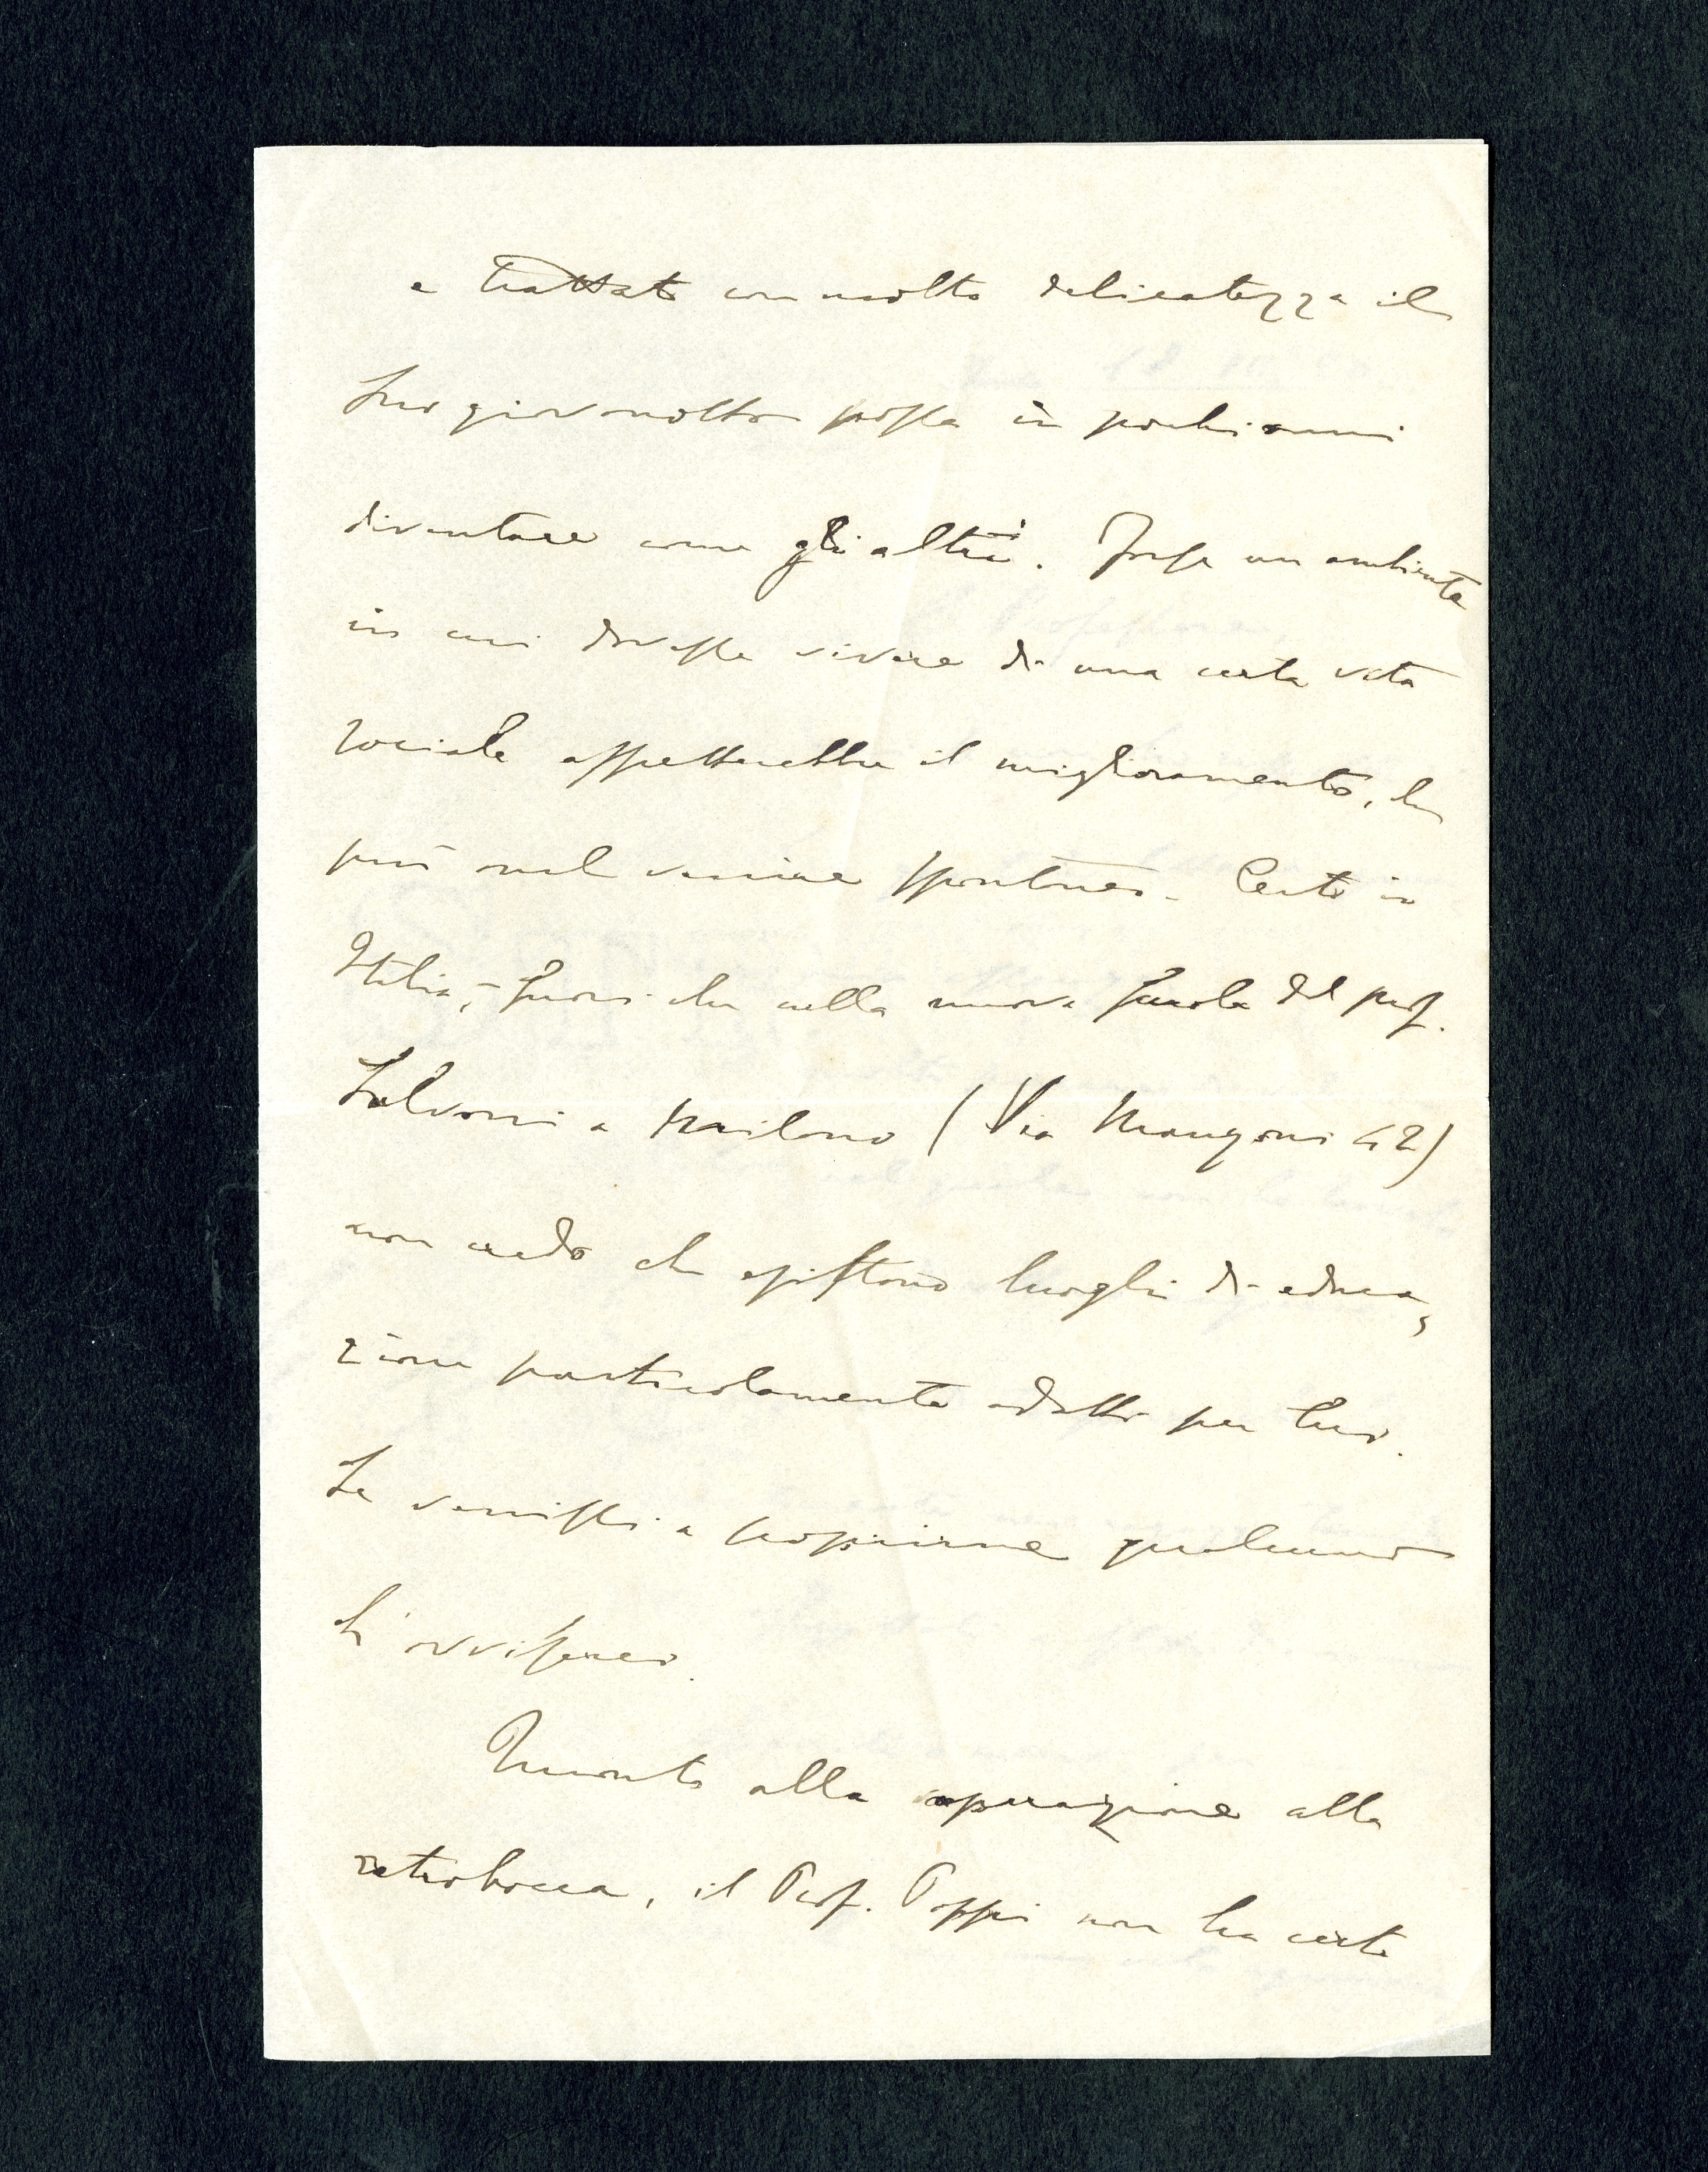 e trattato con molta delicatezza il
suo giovanotto possa in pochi anni
diventare come gli altri. Forse un ambiente
in cui dovesse vivere di una certa vita
sociale affretterebbe il miglioramento, che
può nel venire spontaneo. Certo in
Italia, fuori che nella nuova scuola del prof.
Salvoni a Milano (Via Manzoni 42)
non credo che esistono luoghi di educa,
zione particolarmente adatti per Suo.
Se venissi a scoprirne qualcuno
L'avviserei.
Quanto alla operazione alla
retrobocca, il Prof. Poppi non ha certo